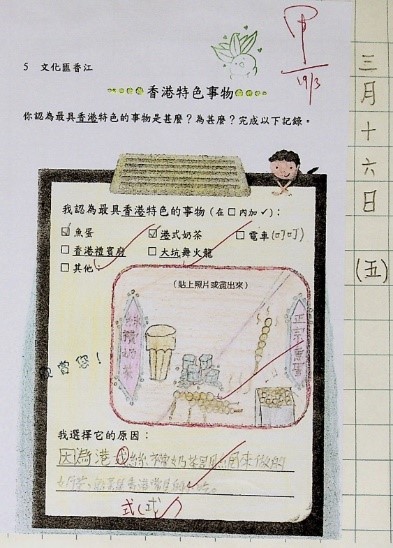 甲
19/3
5 文化匯香江
香港特色事物
你認為最具香港特色的事物是甚麼？為甚麼？完成以下記錄。
三月十六日(五)
我認為最具香港特色的事物（在□內加✓）：
☑魚蛋 ☑港式奶茶 □電車(叮叮)
□香港禮賓府 □大坑舞火龍
□其他：
（貼上照片或畫出來）
絲襪奶茶
正宗魚蛋
我選擇它的原因：
因為港式絲襪奶茶是用絲
來做的
式(式)